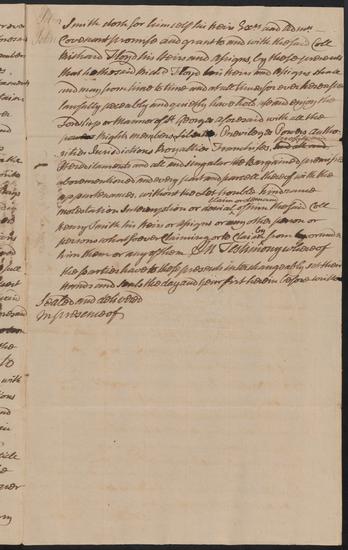 Smith doth for himself his heirs Exrs and Admrs
Covenant promise and grant to and with the said Coll
Richard Floyd his heirs and Assigns, by these presents
that he the said Richd Floyd his heirs and Assigns shall
and may from time to time and at all times for ever hereafter
lawfully peaceably and quietly have hold use and enjoy the
Lordship or Mannor of St Georges aforesaid with all the
Rights members Priviledges Powers Autho
rities Jurisdictions Royalties Franchises, and all and
Hereditaments and all and singular the Bargained premises
abovementioned and every part and parcel thereof with the
appurtenances, without the let trouble hindrance
claim or demand
molestation Interruption or denial of him the said Coll
henry Smith his heirs or Assigns or any other person or
persons whatsoever Claiming or to Claim by from or under
him them or any of them In Testimony whereof
the parties have to these presents interchangeably set their
Hands and Seals the day and year first herein before written
Sealed and delivered
In presence of